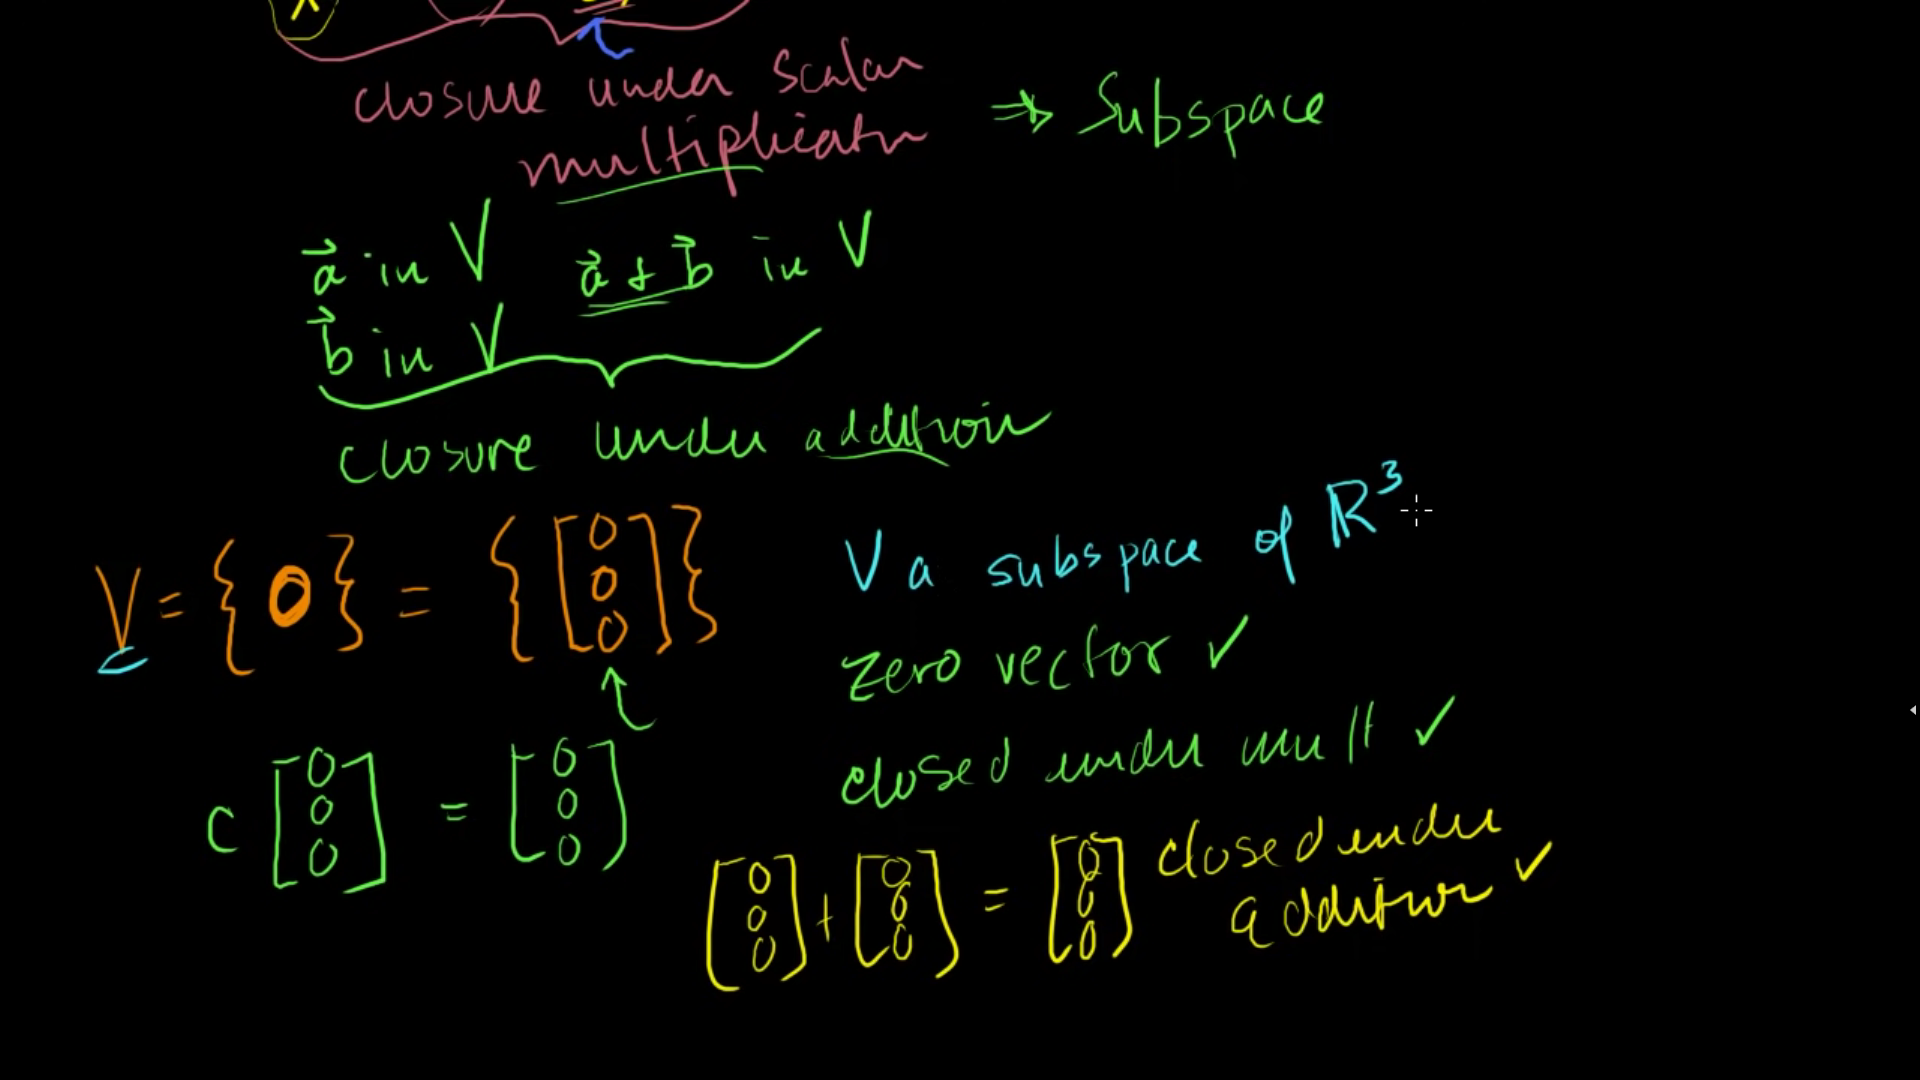 closure under scalar
multiplicatn ⇒ Subspace
a⃗ in V a⃗ + b⃗ in V
b⃗ in V
closure under addition
V = { 0 } = { [ 0 0 0 ] }
V a subspace of ℝ³
zero vector ✓
closed under mult ✓
c [ 0 0 0 ] = [ 0 0 0 ]
[ 0 0 0 ] + [ 0 0 0 ] = [ 0 0 0 ] closed under
addition ✓